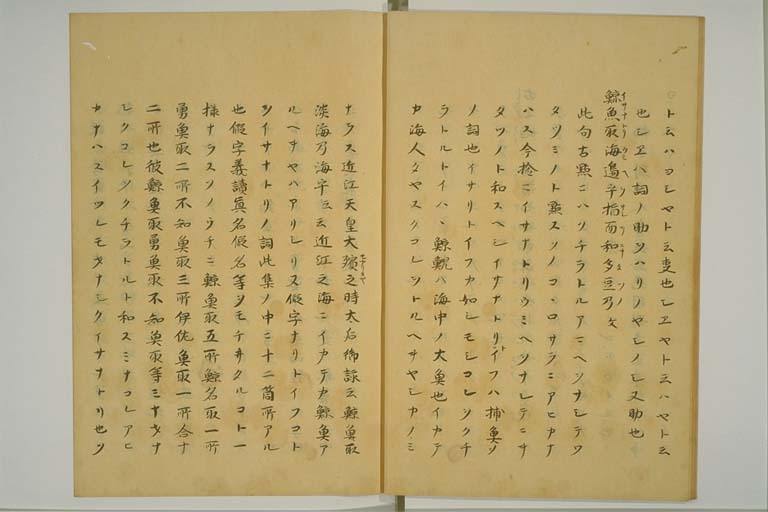 トミハコシヤト云㕝也シヱヤト云ハヤト云
也シヱハ詞ノ助ツハリノヤシノシ又助也
鯨魚取海邉乎指而和多豆乃 文
此句古點ニハソチラトルアニヘツナシテワ
タツミノト點スソノコヽロサラニアヒカナ
ハス今捻ニイサナトリウミヘツナシテニキ
タツノト和スヘシイサナトリイフハ捕魚ソ
ノ詞也イサリトイフカ如シモシコレシクチ
ラトルトイハヽ鯨鯢ハ海中ノ大魚也イカテ
カ海人タヤスクコレシトルヘキヤシカノミ
ナラス近江天皇大殯之時大后御詠云鯨魚取
淡海乃海乎云云近江之海ニイカテカ鯨魚ア
ルヘキヤハアリレリ又假字ナリトイフコト
シイサナトリノ詞此集ノ中ニ十二箇所アル
也假字義讀真名假名等シモチヰタルコト一
様ナラスソノウチニ鯨魚取五所鯨名取一所
勇魚取二所不知魚取三所伊佐魚取一所合十
二所也彼鯨魚取勇魚取不知魚取等ミナサナ
シクコレシクチラトルト和スミナコレアヒ
カナハスイツレモタナシクイサナトリ也ツ